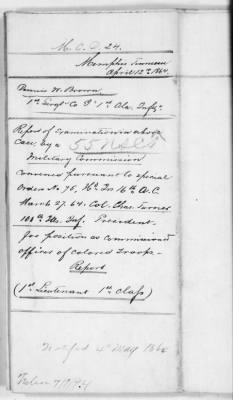 M. C. D. 24.
Memphis Tennessee
April 12th 1864.
Dennis W. Brown
1st Sergt Co "D" 1st Ala. Infy.
Report of examination in above
case by a 55 USCT
Military Commission
convened pursuant to special
Order No 76, Hd Qrs 16th A.C.
March 27. 64. Col. Chas. Turner
108th Ills. Inf. President.
for position as commissioned
officer of colored troops.
Report
(1st Lieutenant 1st class)
Notified 4" May 1864